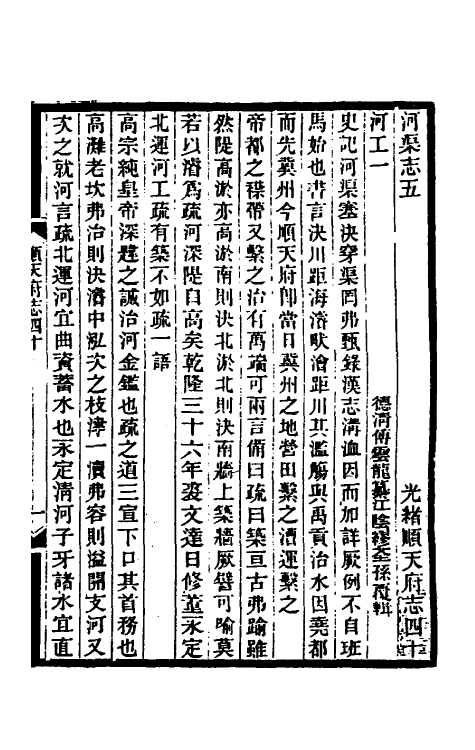 河渠志五　光緒順天府志四十
河工一　德淸傅雲龍纂江陰繆荃孫覆輯
史記河渠塞決穿渠罔弗甄錄漢志溝洫因而加詳厥例不自班
馬始也書言決川距海濬畎澮距川其濫觴與禹貢治水因堯都
而先冀州今順天府卽當日冀州之地營田繫之漕運繫之
帝都之襟帶又繫之治有萬端可兩言備曰疏曰築亘古弗踰雖
然隄高淤亦高淤南則決北淤北則決南牆上築牆厥譬可喻莫
若以濬爲疏河深隄自高矣乾隆三十六年裘文達日修董永定
北運河工疏有築不如疏一語
高宗純皇帝深韙之誠治河金鑑也疏之道三宣下口其首務也
高灘老坎弗治則決濬中泓次之枝津一瀆弗容則溢開支河又
次之就河言疏北運河宜曲資蓄水也永定淸河子牙諸水宜直
順天府志四十
一